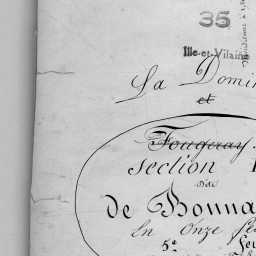 35
Ille-et-Vilaine
La Domin
et
Fougeray
Section
dite
de Bonna
En Onze f
5e